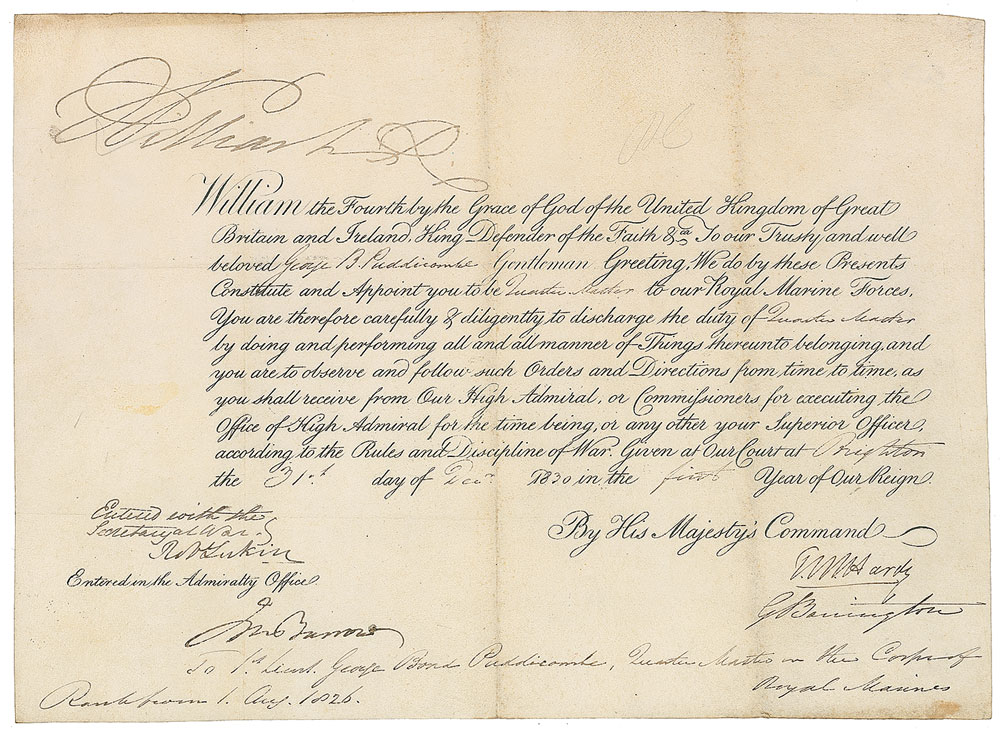 William R.
William the Fourth by the Grace of God of the United Kingdom of Great
Britain and Ireland, King Defender of the Faith &ca To our Trusty and well
beloved George B. Puddicombe Gentleman Greeting, We do by these Presents
Constitute and Appoint you to be Quarter Master to our Royal Marine Forces,
You are therefore carefully & diligently to discharge the duty of Quarter Master
by doing and performing all and all manner of Things thereunto belonging, and
you are to observe and follow such Orders and Directions from time to time, as
you shall receive from Our High Admiral, or Commissioners for executing the
Office of High Admiral for the time being, or any other your Superior Officer,
according to the Rules and Discipline of War. Given at Our Court at Brighton
the 31st day of Decr 1830 in the first Year of Our Reign.
Entered with the
Secretary at War.
By His Majesty's Command
Entered in the Admiralty Office
T. M. Hardy
G Barrington
Jno Barrow
To 1st Lieut. George Bond Puddicombe, Quarter Master in the Corps of
Royal Marines
Rank from 1. Aug. 1826.